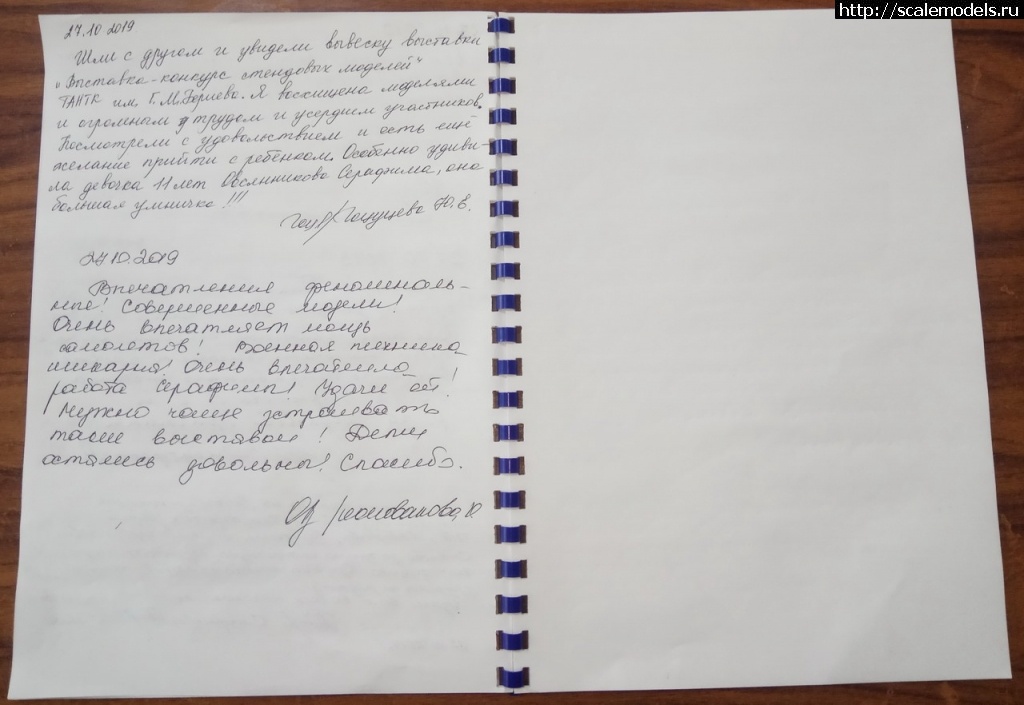 http://scalemodels.ru
27.10 2019
Шли с другом и увидели вывеску выставки
"Выставка-конкурс стендовых моделей"
ТАНТК им. Г.М.Бериева. Я восхищена моделями
и огромным трудом и усердием участников.
Посмотрели с удовольствием и есть ещё
желание прийти с ребёнком. Особенно удиви-
ла девочка 11 лет Овсянникова Серафима, она
большая умничка!!!
Ю.В.
27.10.2019
Впечатления феноменаль-
ные! Совершенные модели!
Очень впечатляет мощь
самолетов! Военная техника
шикарна! Очень впечатлила
работа Серафимы! Удачи ей!
Нужно чаще устраивать
такие выставки! Дети
остались довольны! Спасибо.
Ю.